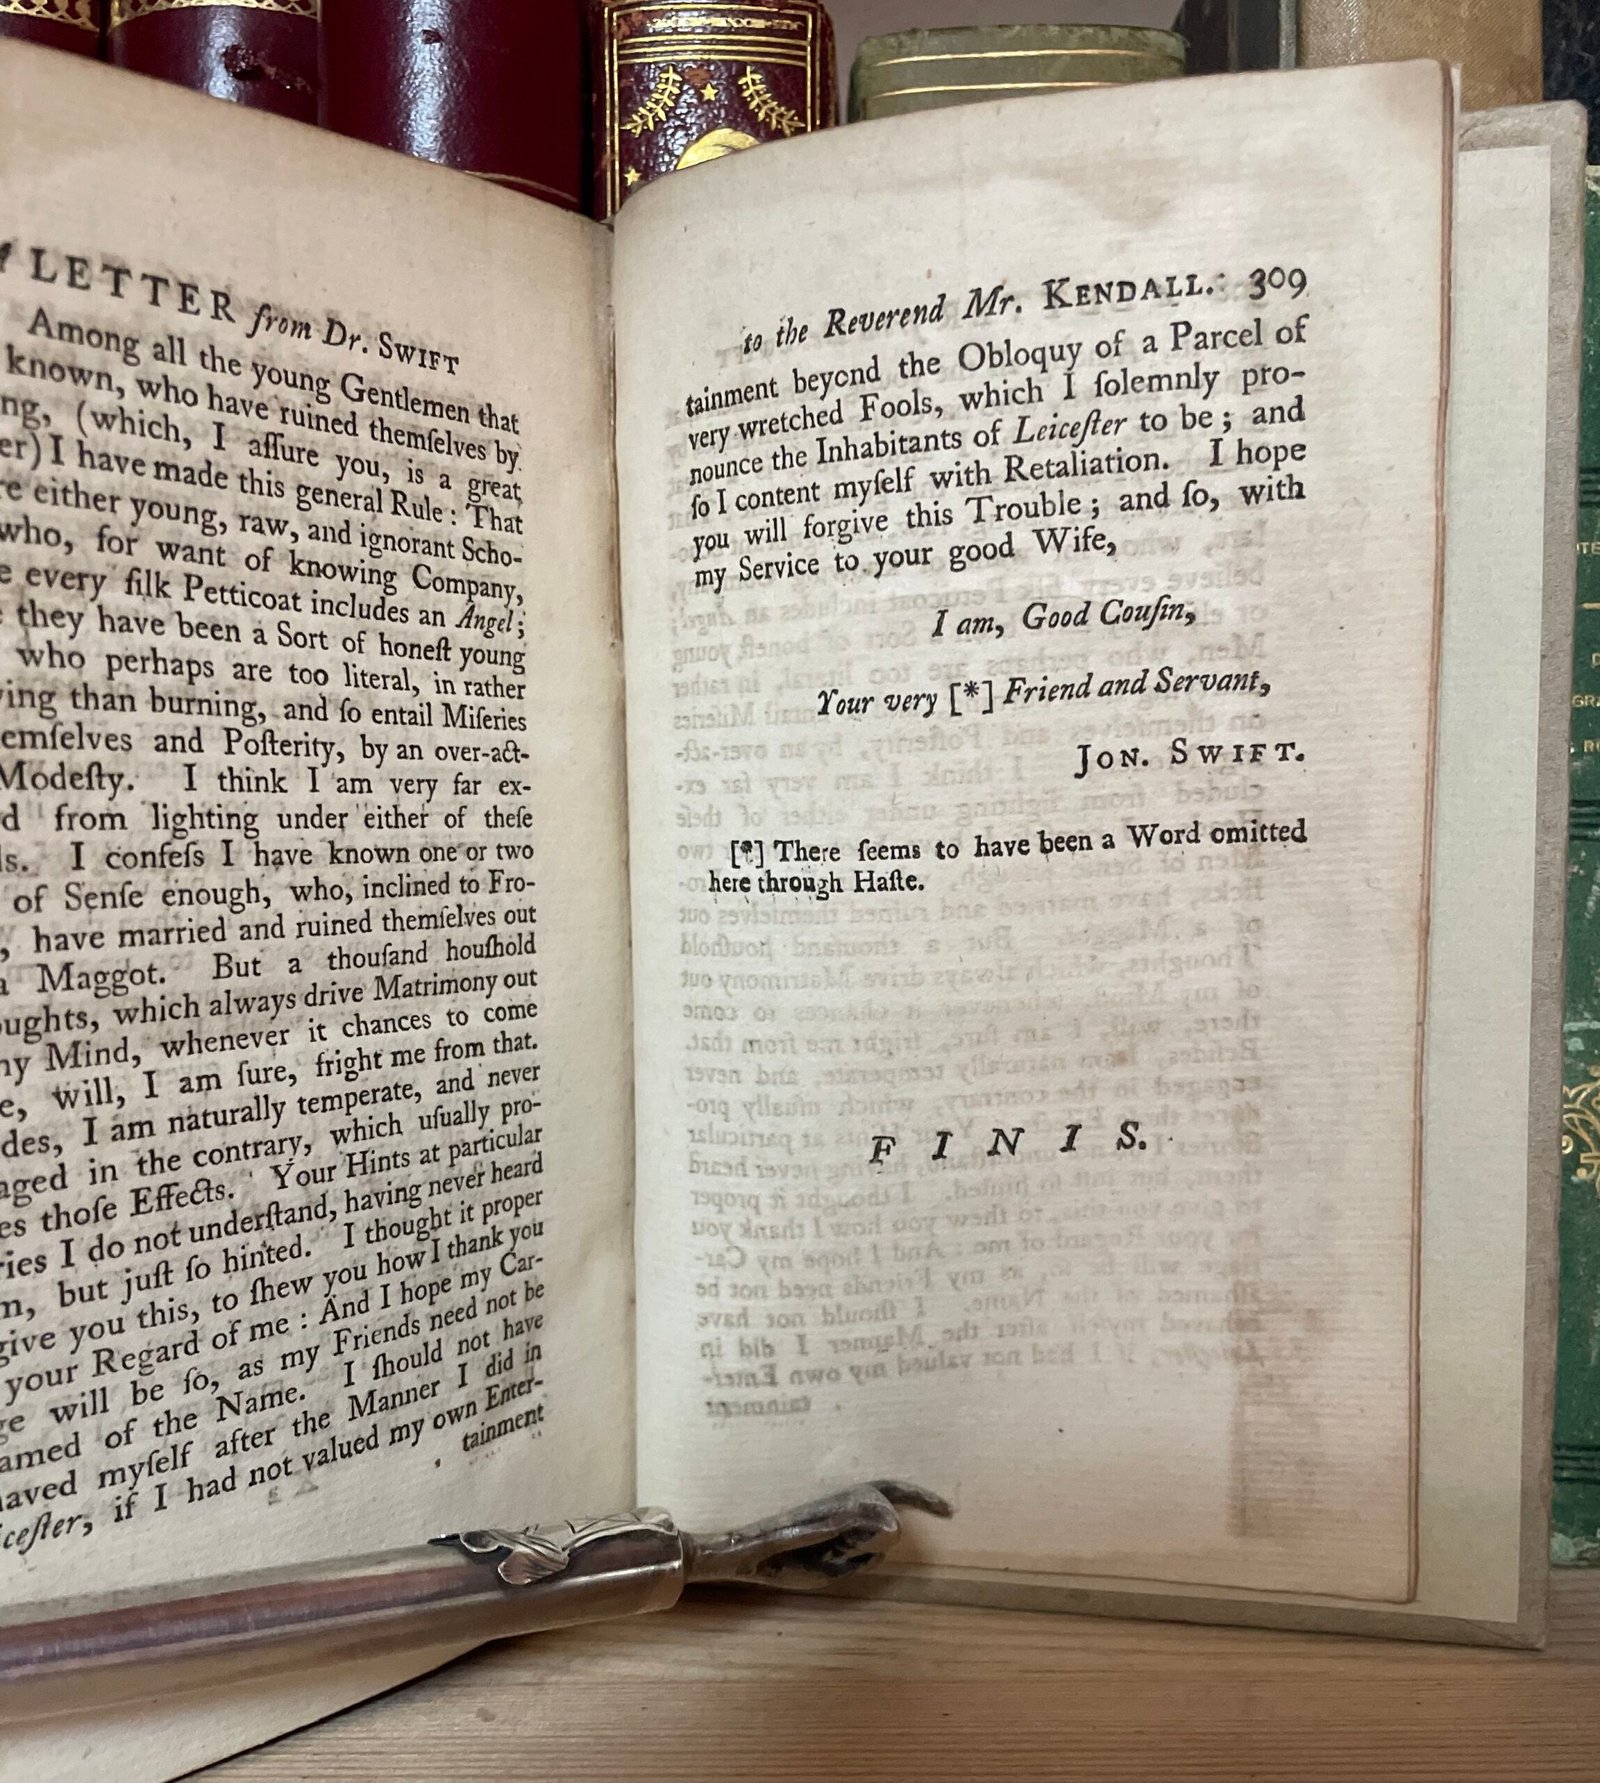 LETTER from Dr. SWIFT
Among all the young Gentlemen that
known, who have ruined themſelves by
ng, (which, I aſſure you, is a great
er) I have made this general Rule : That
re either young, raw, and ignorant Scho-
who, for want of knowing Company,
e every ſilk Petticoat includes an Angel;
they have been a Sort of honeſt young
who perhaps are too literal, in rather
ying than burning, and ſo entail Miſeries
emſelves and Poſterity, by an over-act-
Modeſty. I think I am very far ex-
d from lighting under either of theſe
ds. I confeſs I have known one or two
of Senſe enough, who, inclined to Fro-
, have married and ruined themſelves out
a Maggot. But a thouſand houſhold
oughts, which always drive Matrimony out
my Mind, whenever it chances to come
e, will, I am ſure, fright me from that.
des, I am naturally temperate, and never
aged in the contrary, which uſually pro-
es thoſe Effects. Your Hints at particular
ries I do not underſtand, having never heard
m, but juſt ſo hinted. I thought it proper
give you this, to ſhew you how I thank you
your Regard of me : And I hope my Car-
ge will be ſo, as my Friends need not be
amed of the Name. I ſhould not have
haved myſelf after the Manner I did in
iceſter, if I had not valued my own Enter-
tainment
to the Reverend Mr. KENDALL. 309
tainment beyond the Obloquy of a Parcel of
very wretched Fools, which I ſolemnly pro-
nounce the Inhabitants of Leiceſter to be ; and
ſo I content myſelf with Retaliation. I hope
you will forgive this Trouble ; and ſo, with
my Service to your good Wife,
I am, Good Couſin,
Your very [*] Friend and Servant,
JON. SWIFT.
[*] There ſeems to have been a Word omitted
here through Haſte.
F I N I S.